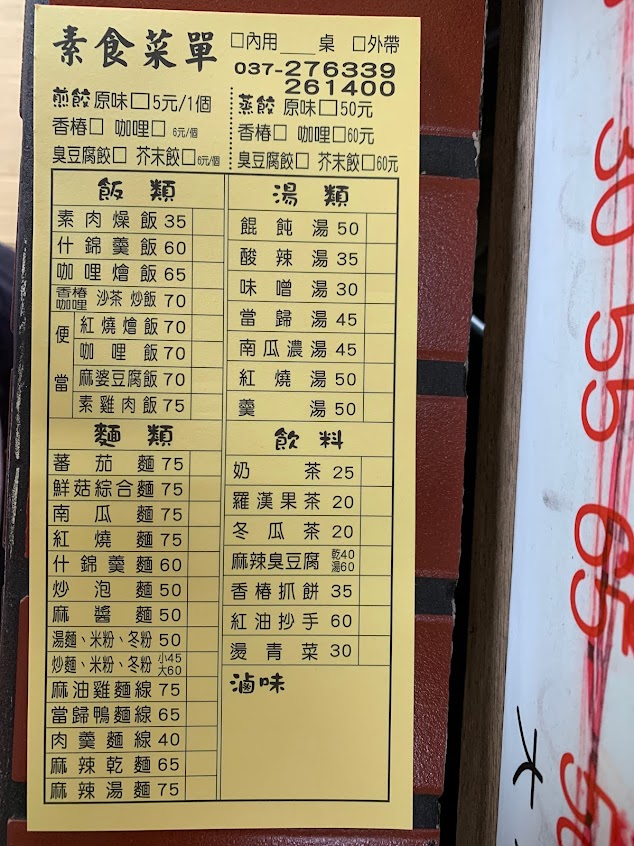 素食菜單 □內用___桌 □外帶
037-276339
261400
煎餃 原味□5元/1個
香椿□ 咖哩□ 6元/個
臭豆腐餃□ 芥末餃□6元/個
蒸餃 原味□50元
香椿□ 咖哩□60元
臭豆腐餃□ 芥末餃□60元
飯類
素肉燥飯 35
什錦羹飯 60
咖哩燴飯 65
香椿 咖哩 沙茶 炒飯 70
便當
紅燒燴飯 70
咖哩飯 70
麻婆豆腐飯 70
素雞肉飯 75
麵類
蕃茄麵 75
鮮菇綜合麵 75
南瓜麵 75
紅燒麵 75
什錦羹麵 60
炒泡麵 50
麻醬麵 50
湯麵、米粉、冬粉 50
炒麵、米粉、冬粉 小45 大60
麻油雞麵線 75
當歸鴨麵線 65
肉羹麵線 40
麻辣乾麵 65
麻辣湯麵 75
湯類
餛飩湯 50
酸辣湯 35
味噌湯 30
當歸湯 45
南瓜濃湯 45
紅燒湯 50
羹湯 50
飲料
奶茶 25
羅漢果茶 20
冬瓜茶 20
麻辣臭豆腐 乾40 湯60
香椿抓餅 35
紅油抄手 60
燙青菜 30
滷味
30
55
65